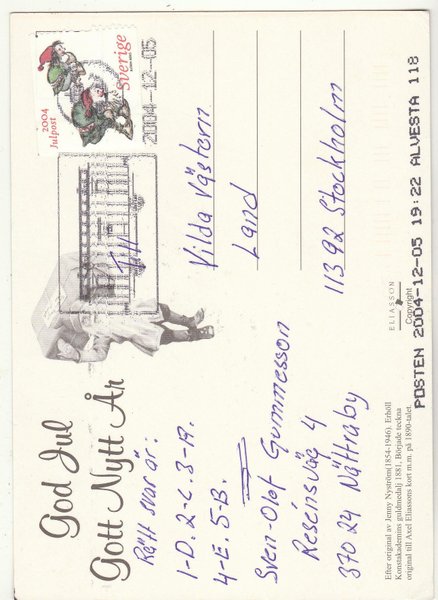 God Jul
Gott Nytt År
Rätt svar är:
1-D. 2-C. 3-A.
4-E. 5-B.
Sven-Olof Gummesson
Resensväg 4
370 24 Nättraby
Till
Vilda Västern
Land
113 92 Stockholm
2004
Julpost
Sverige
2004-12-05
POSTEN 2004-12-05 19:22 ALVESTA 118
ELIASSON
Copyright
Efter original av Jenny Nyström(1854-1946). Erhöll
Konstakademins guldmedalj 1881. Började teckna
original till Axel Eliassons kort m.m. på 1890-talet.